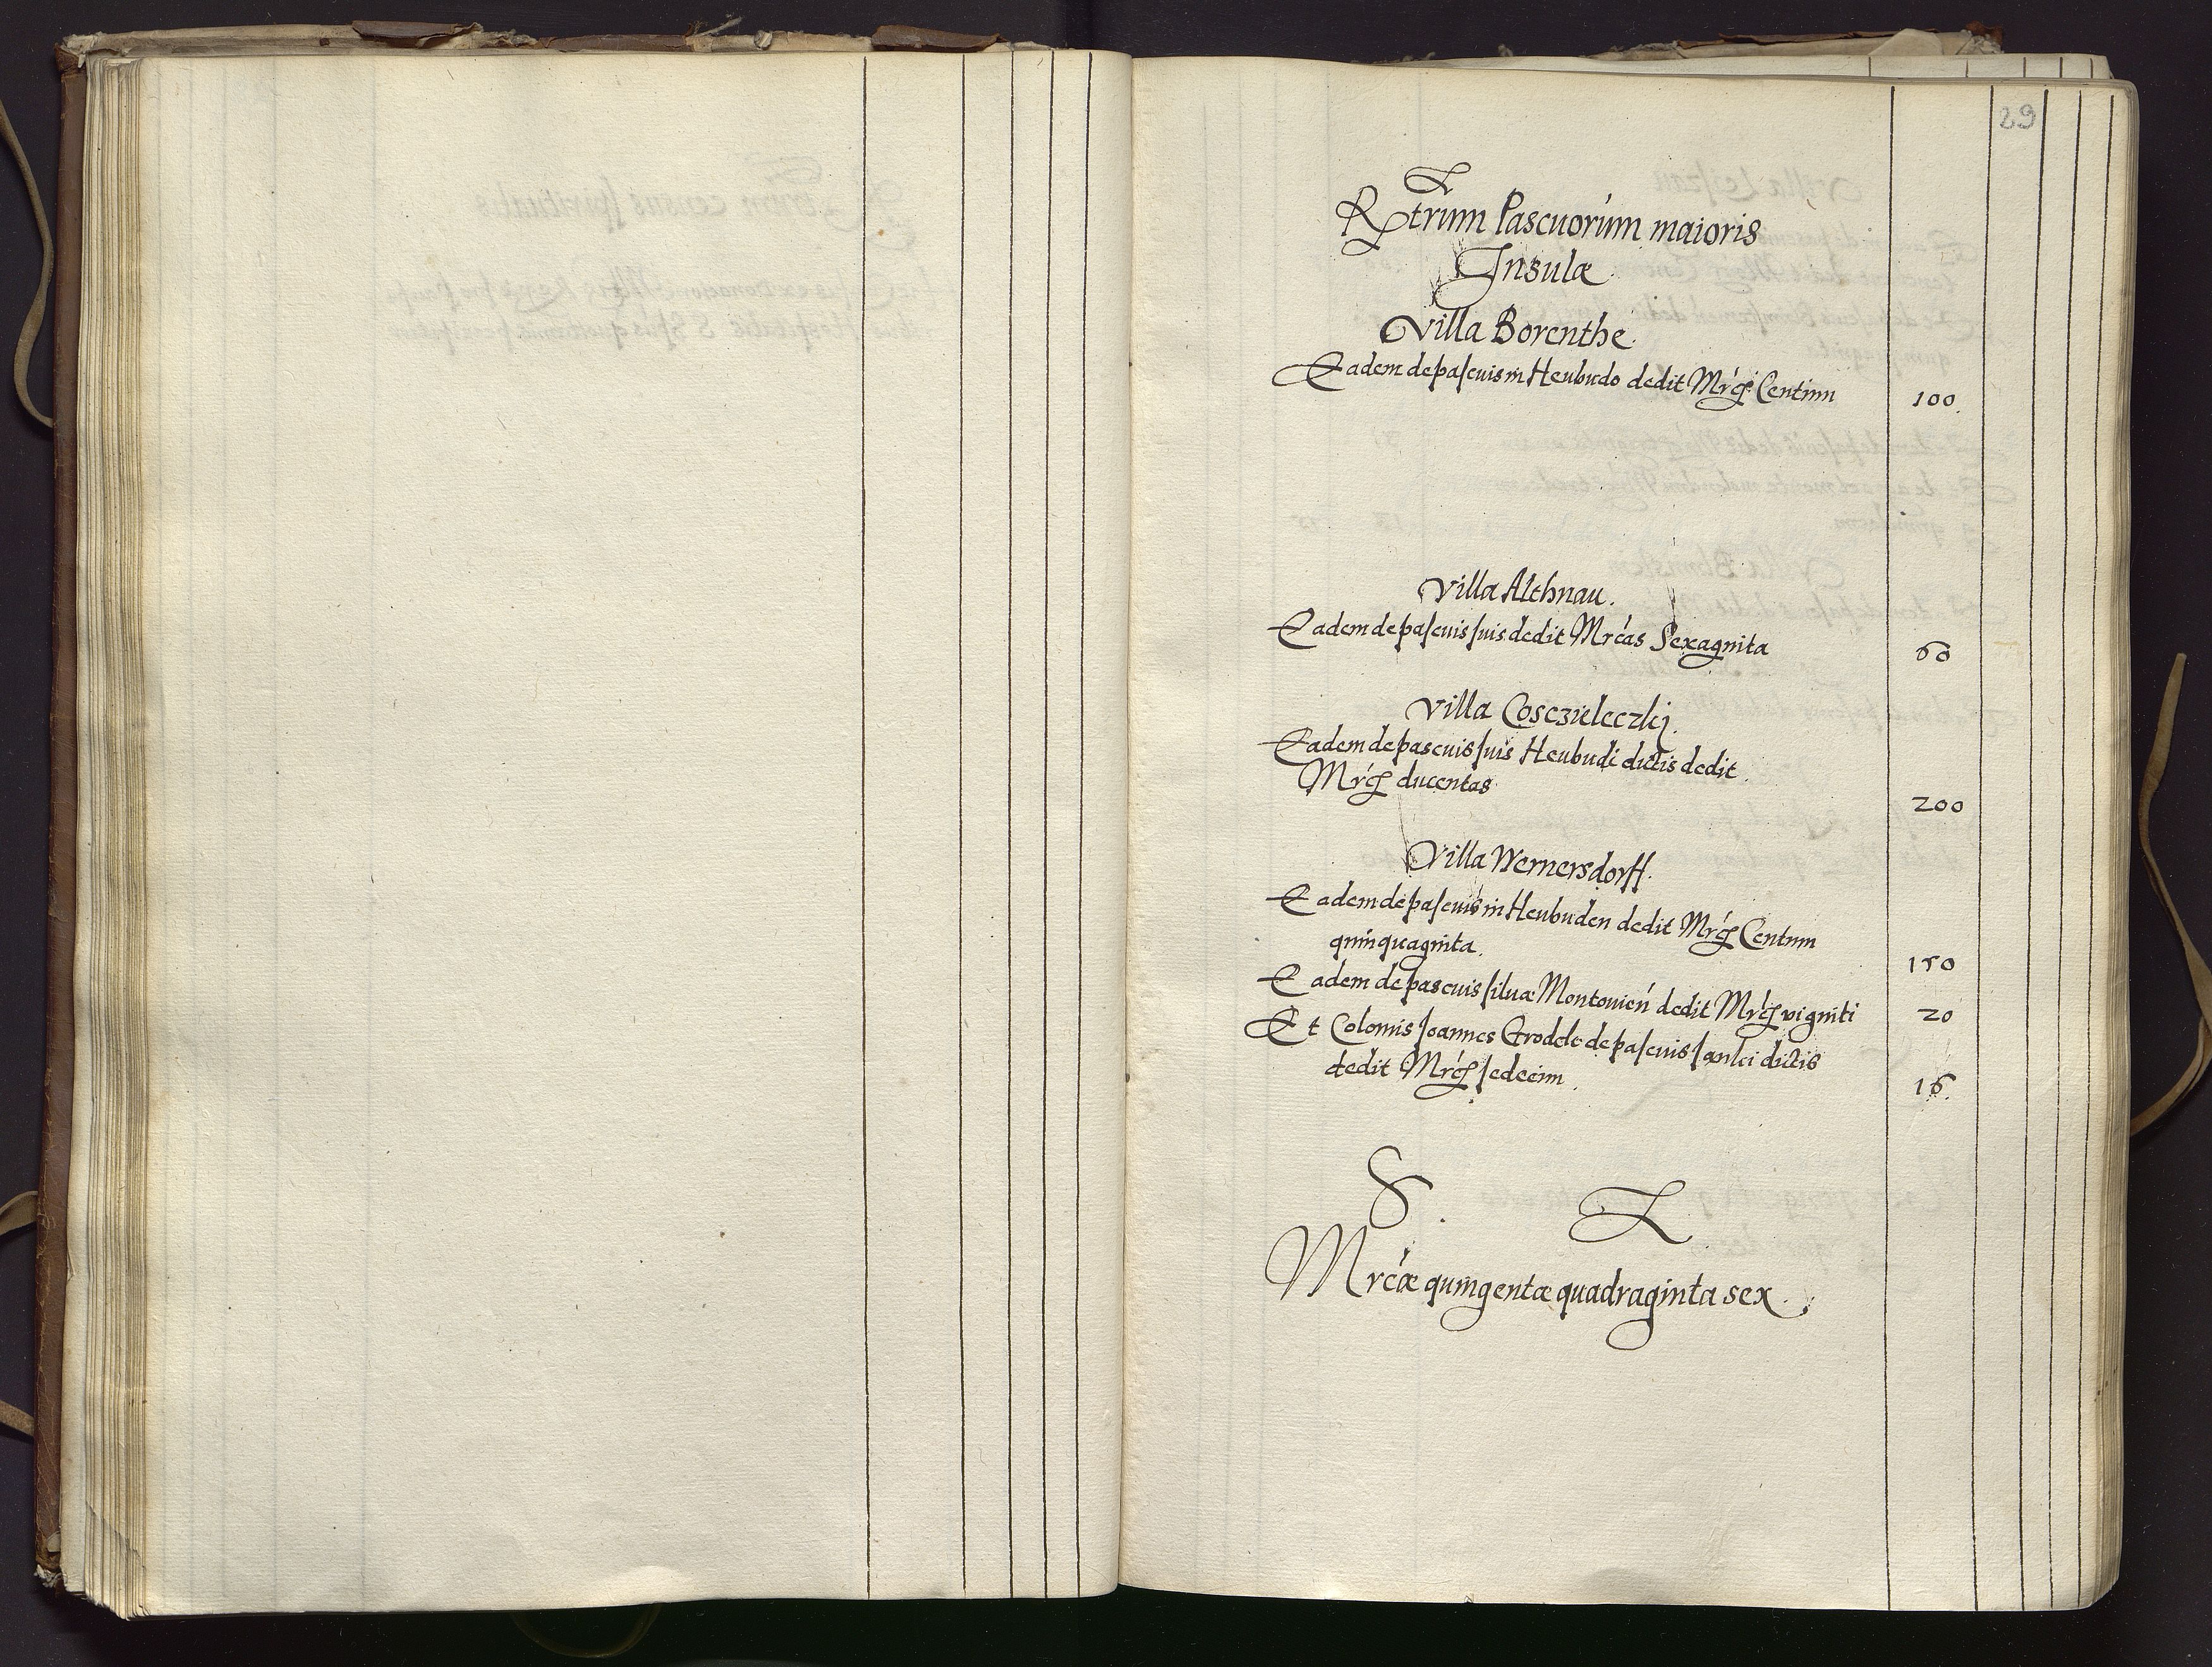 29
Rŋtrum Pascuorum maioris
Insulæ
Villa Borenthe.
Eadem de pascuis in Heubudo dedit Mrcꝭ Centum 100.
Villa Althnau.
Eadem de pascuis suis dedit Mrcas Sexaginta 60
Villa Cosczieleczkj.
Eadem de pascuis suis Heubudi dictis dedit
Mrcꝭ ducentas 200
Villa Wernersdorff.
Eadem de pascuis in Heubuden dedit Mrcꝭ Centum
quinquaginta. 150
Eadem de pascuis siluæ Montouien dedit Mrcꝭ viginti 20
Et Colonus Joannes Grodele de pascuis sanlei dictis
dedit Mrcꝭ sedecim. 16.
S.
Mrcæ quingentæ quadraginta sex.